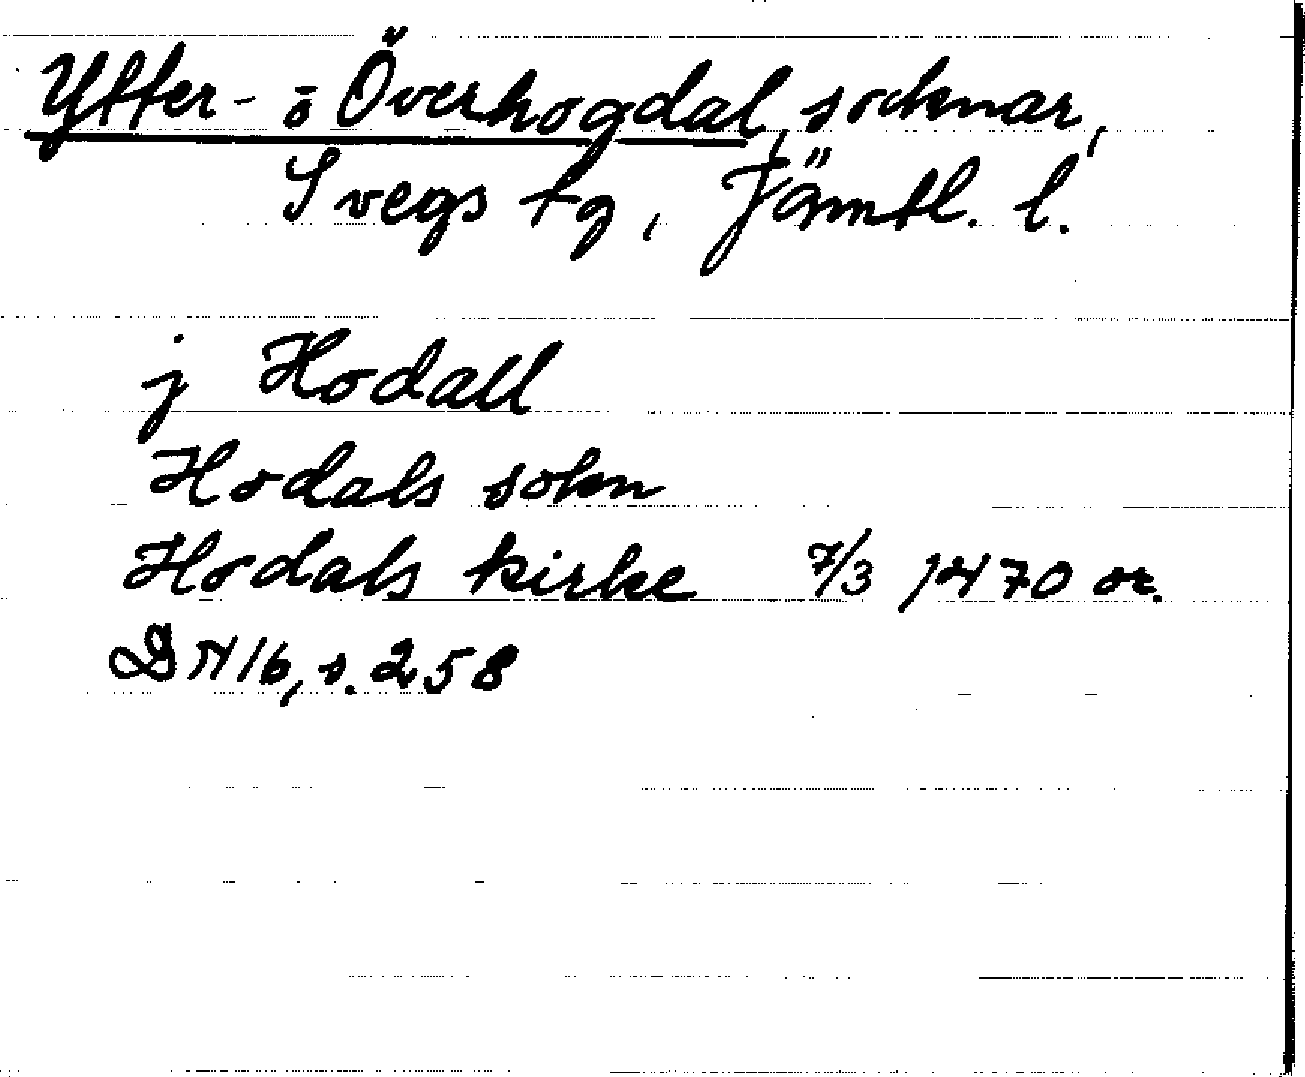 Ytter- o Överhogdal, socknar,
Svegs tg, Jämtl. l.
j Hodall
Hodals sokn
Hodals kirke 7/3 1470 or.
DN 16, s. 258